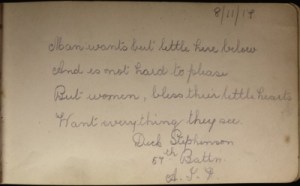 8/11/19
Man wants but little here below
And is not hard to please
But women, bless their little hearts
Want everything they see.
Dick Stephenson
th Battn
A. I. F